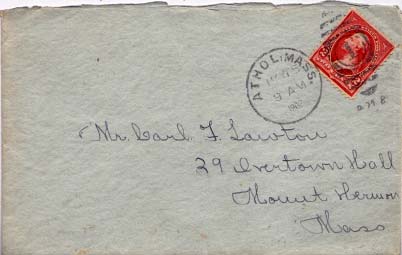 ATHOL, MASS.
9 AM
Mr. Carl F. Lawton
29 Overtown Hall
Mount Hermon
Mass